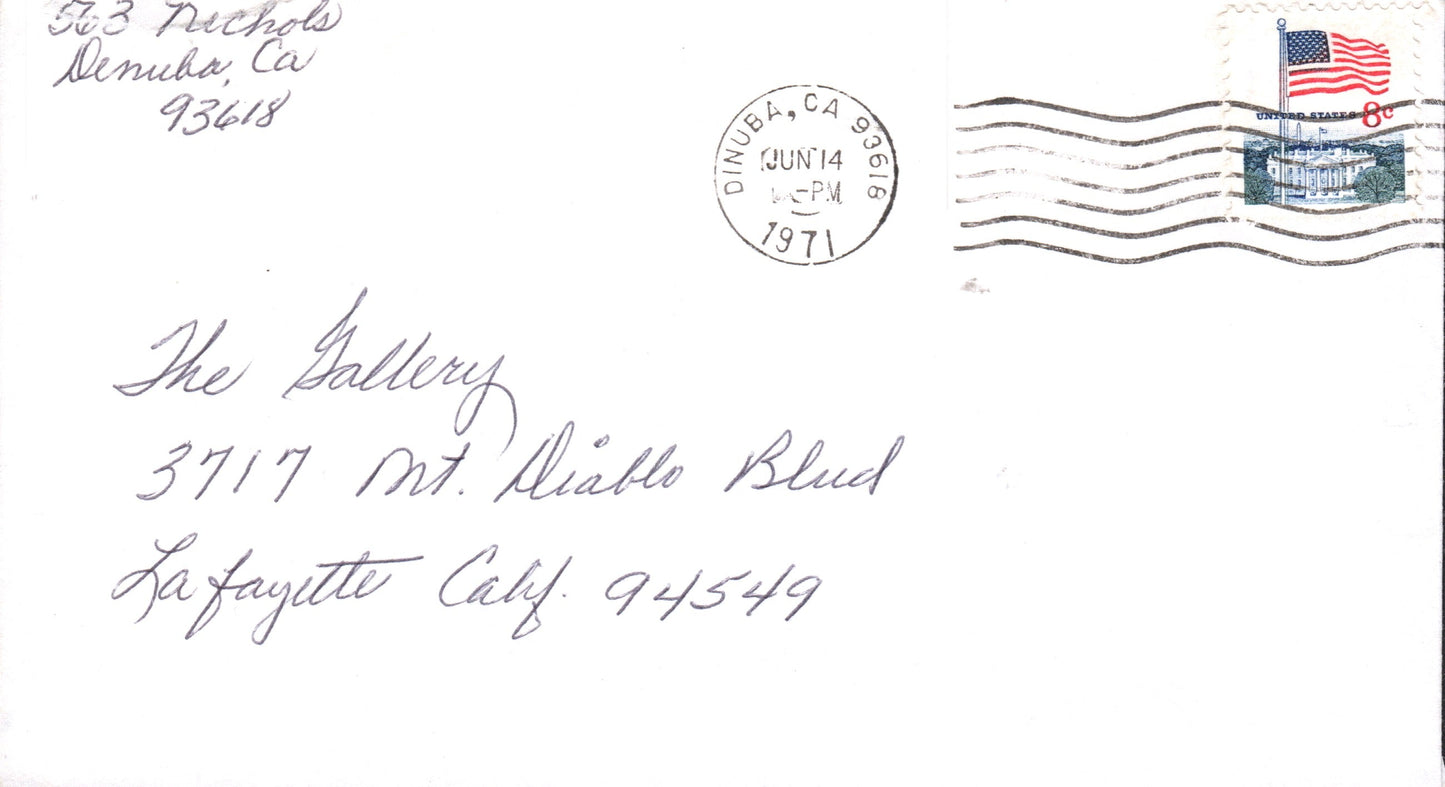 563 Nichols
Denuba, Ca
93618
DINUBA, CA 93618
JUN 14
PM
1971
UNITED STATES 8c
The Gallery
3717 Mt. Diablo Blvd
Lafayette Calif. 94549